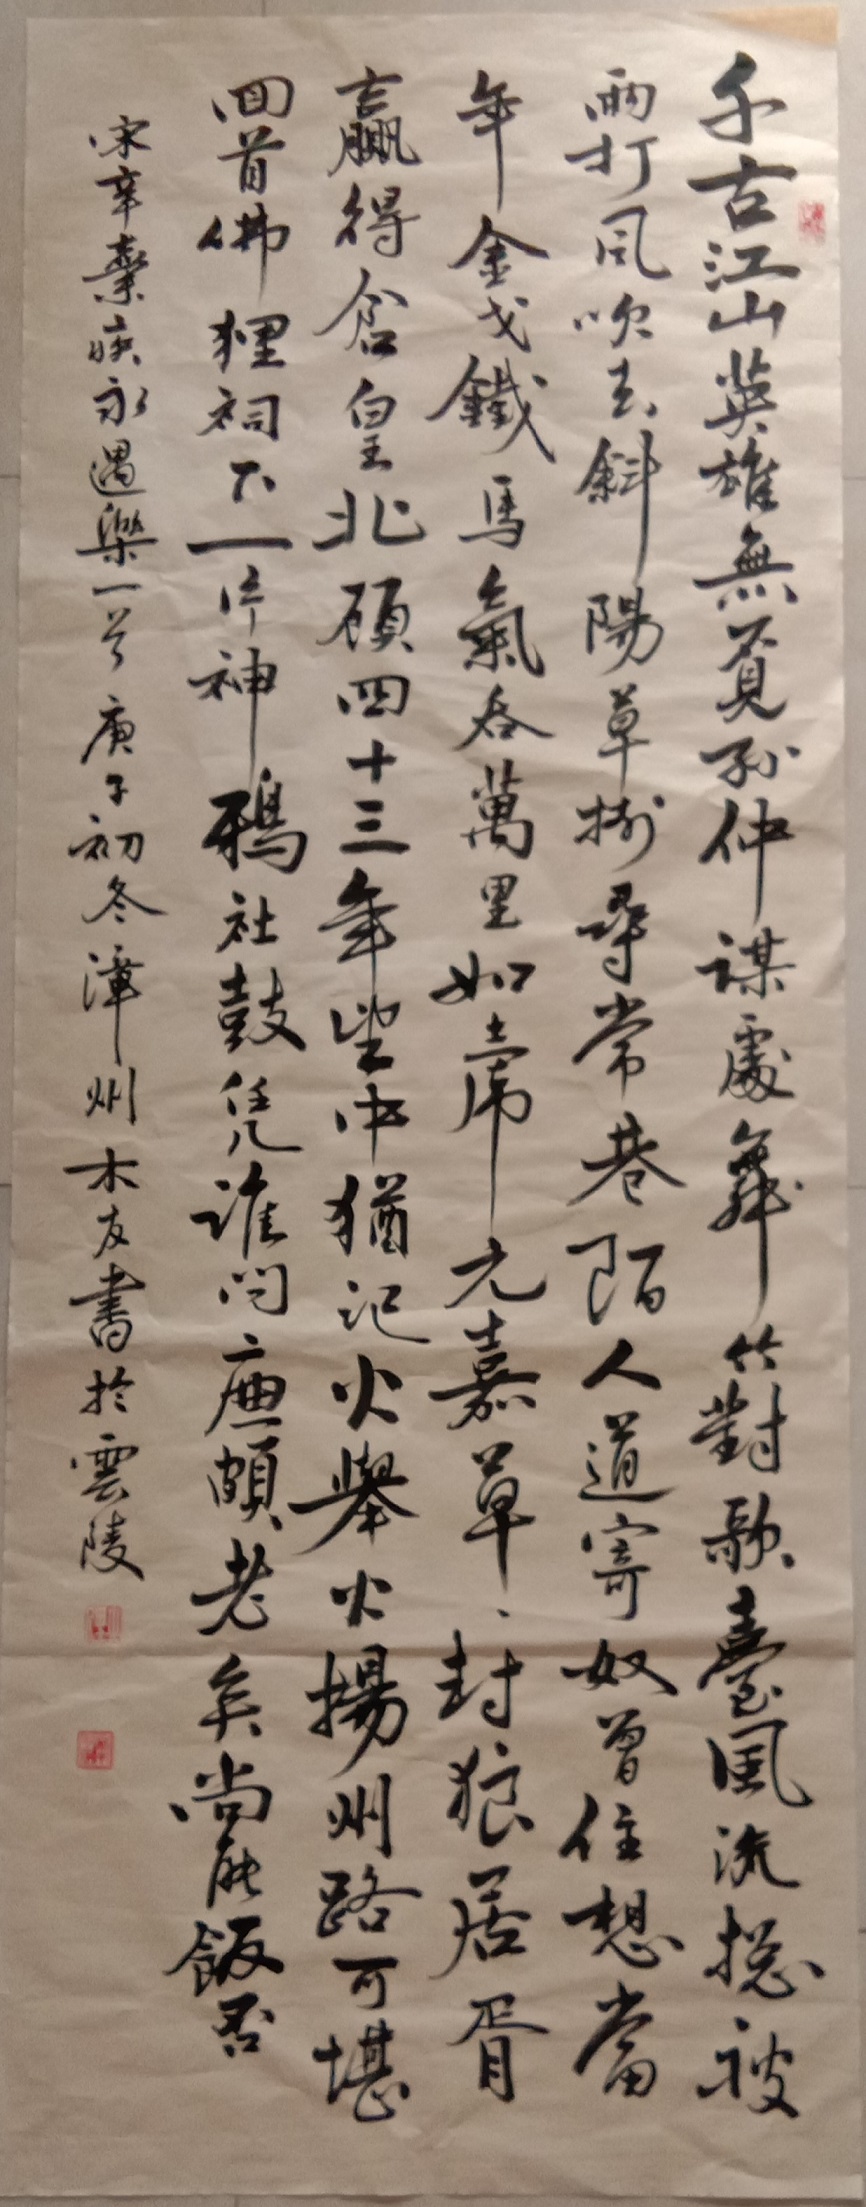 千古江山英雄無覓孫仲謀處舞竹對歌臺風流總被
雨打風吹去斜陽草樹尋常巷陌人道寄奴曾住想當
年金戈鐵馬氣吞萬里如虎元嘉草、封狼居胥
贏得倉皇北顧四十三年望中猶記火舉火揚州路可堪
回首佛狸祠下一片神鴉社鼓凭誰問廉頗老矣尚能飯否
宋辛棄疾永遇樂一首庚子初冬漳州木友書於雲陵